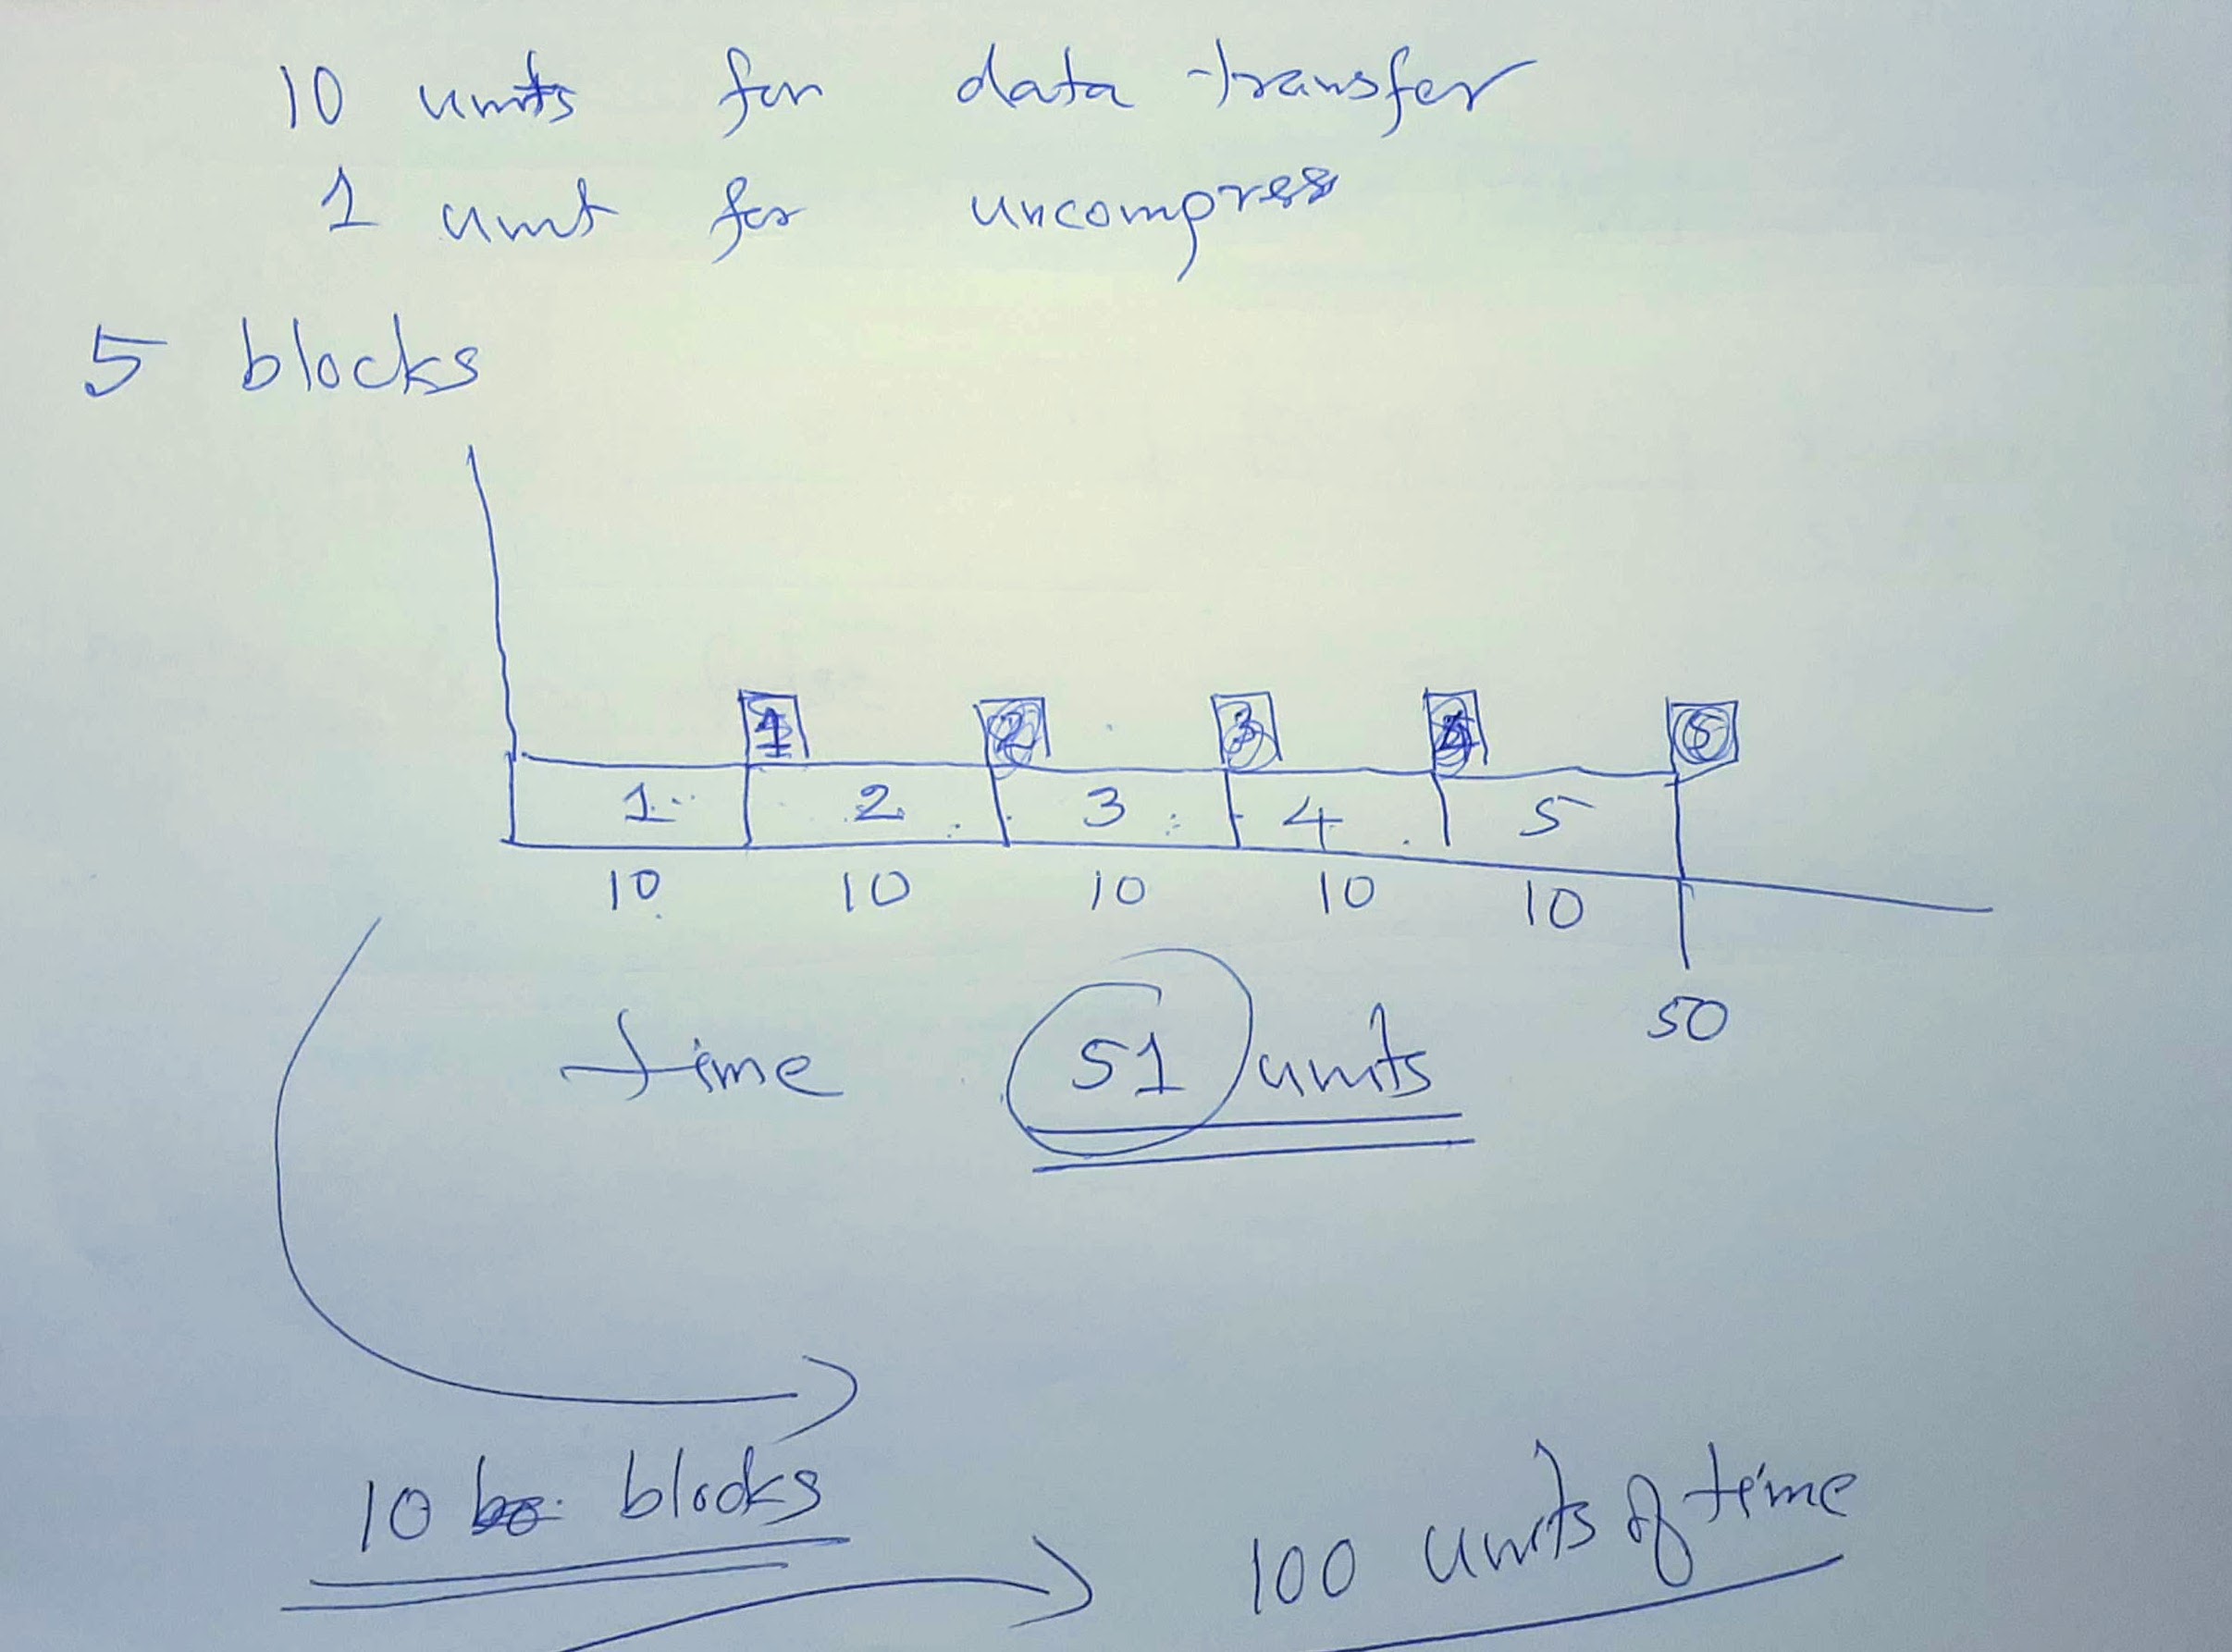 10 units for data transfer
1 unit for uncompress
5 blocks
1 2 3 4 5
1 2 3 4 5
10 10 10 10 10
50
time 51 units
10 blocks
100 units of time